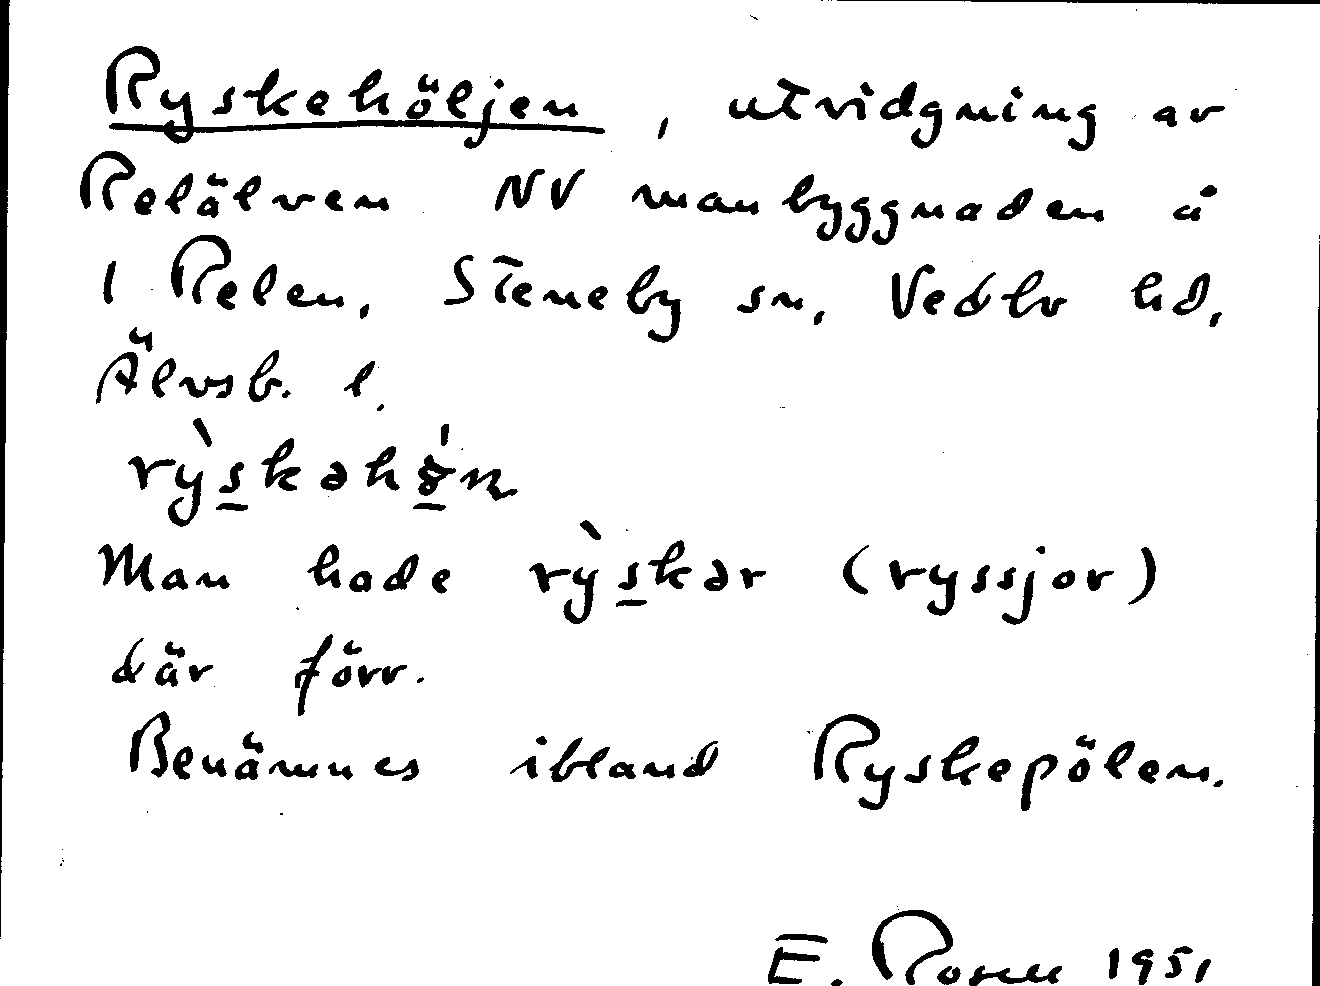 Ryskehöljen, utvidgning av
Relälven NV manbyggnaden å
1 Relen, Steneby sn, Vedbo hd,
Älvsb. l.
Man hade rỳskər (ryssjor)
där förr.
Benämnes ibland Ryskepölen.
E. Rosell 1951